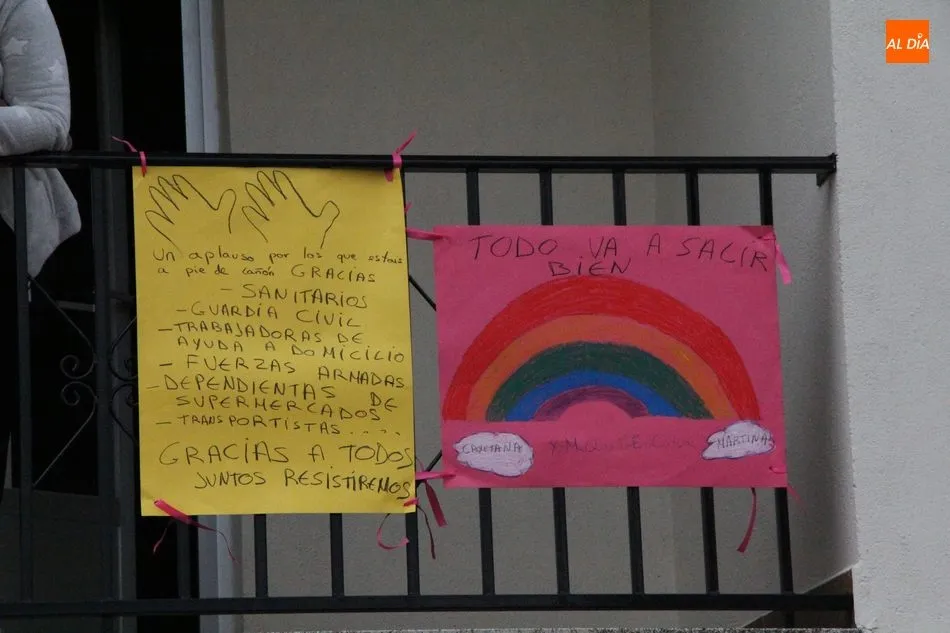 AL DÍA
Un aplauso por los que estais
a pie de cañón GRACIAS
- SANITARIOS
- GUARDIA CIVIL
- TRABAJADORAS DE
AYUDA A DOMICILIO
- FUERZAS ARMADAS
- DEPENDIENTAS DE
SUPERMERCADOS
- TRANSPORTISTAS....
GRACIAS A TODOS
JUNTOS RESISTIREMOS
TODO VA A SALIR
BIEN
CAYETANA
MARTINA